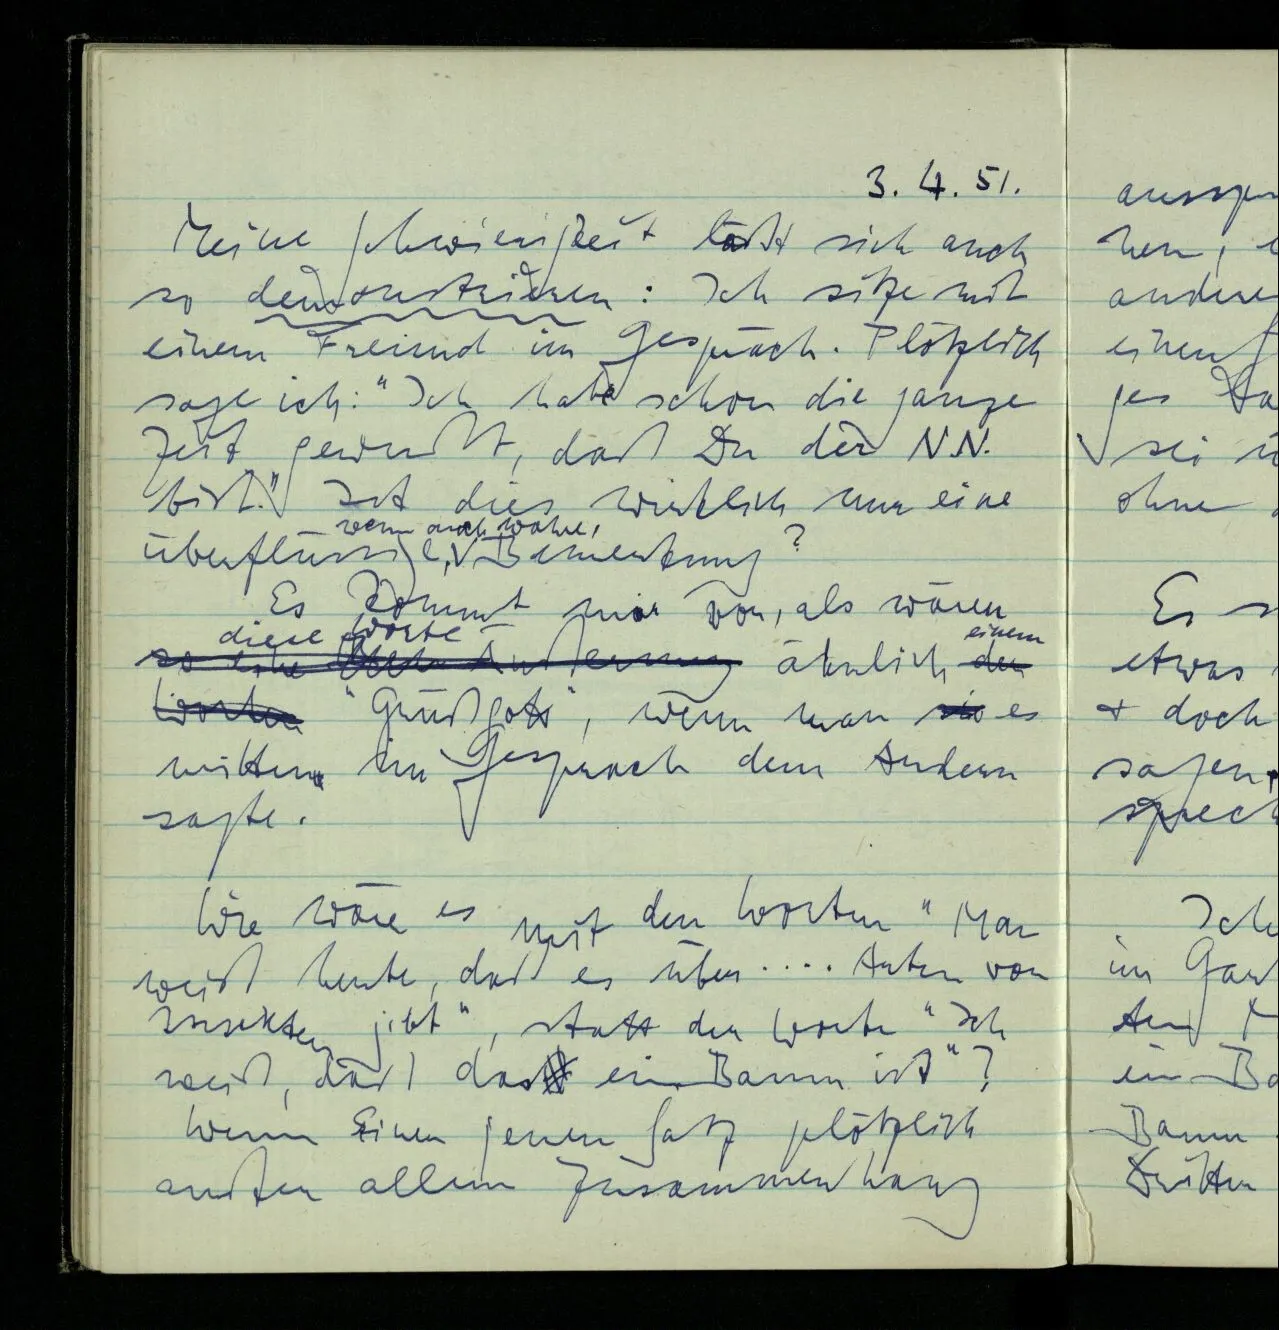 3. 4. 51.
Meine Schwierigkeit läßt sich auch
so demonstrieren: Ich sitze mit
einem Freund im Gespräch. Plötzlich
sage ich: "Ich habe schon die ganze
Zeit gewußt, daß Du der N.N.
bist." Ist dies wirklich nur eine
wenn auch wahre,
überflüssige, Bemerkung?
Es kommt mir vor, als wären
diese Worte einem
so eine Äußerung ähnlich den
Worten "Grüß Gott", wenn man sie es
mitten im Gespräch dem Andern
sagte.
Wie wäre es mit den Worten "Man
weiß heute, daß es über .... Arten von
Insekten gibt", statt der Worte "Ich
weiß, daß das ein Baum ist"?
Wenn Einer jenen Satz plötzlich
außer allem Zusammenhang
ausspr
chen,
andere
einen
ges
sei
ohne
Es
etwas
+ doch
sagen.
sprech
Ich
im Gar
ein Ba
Baum
Dritter